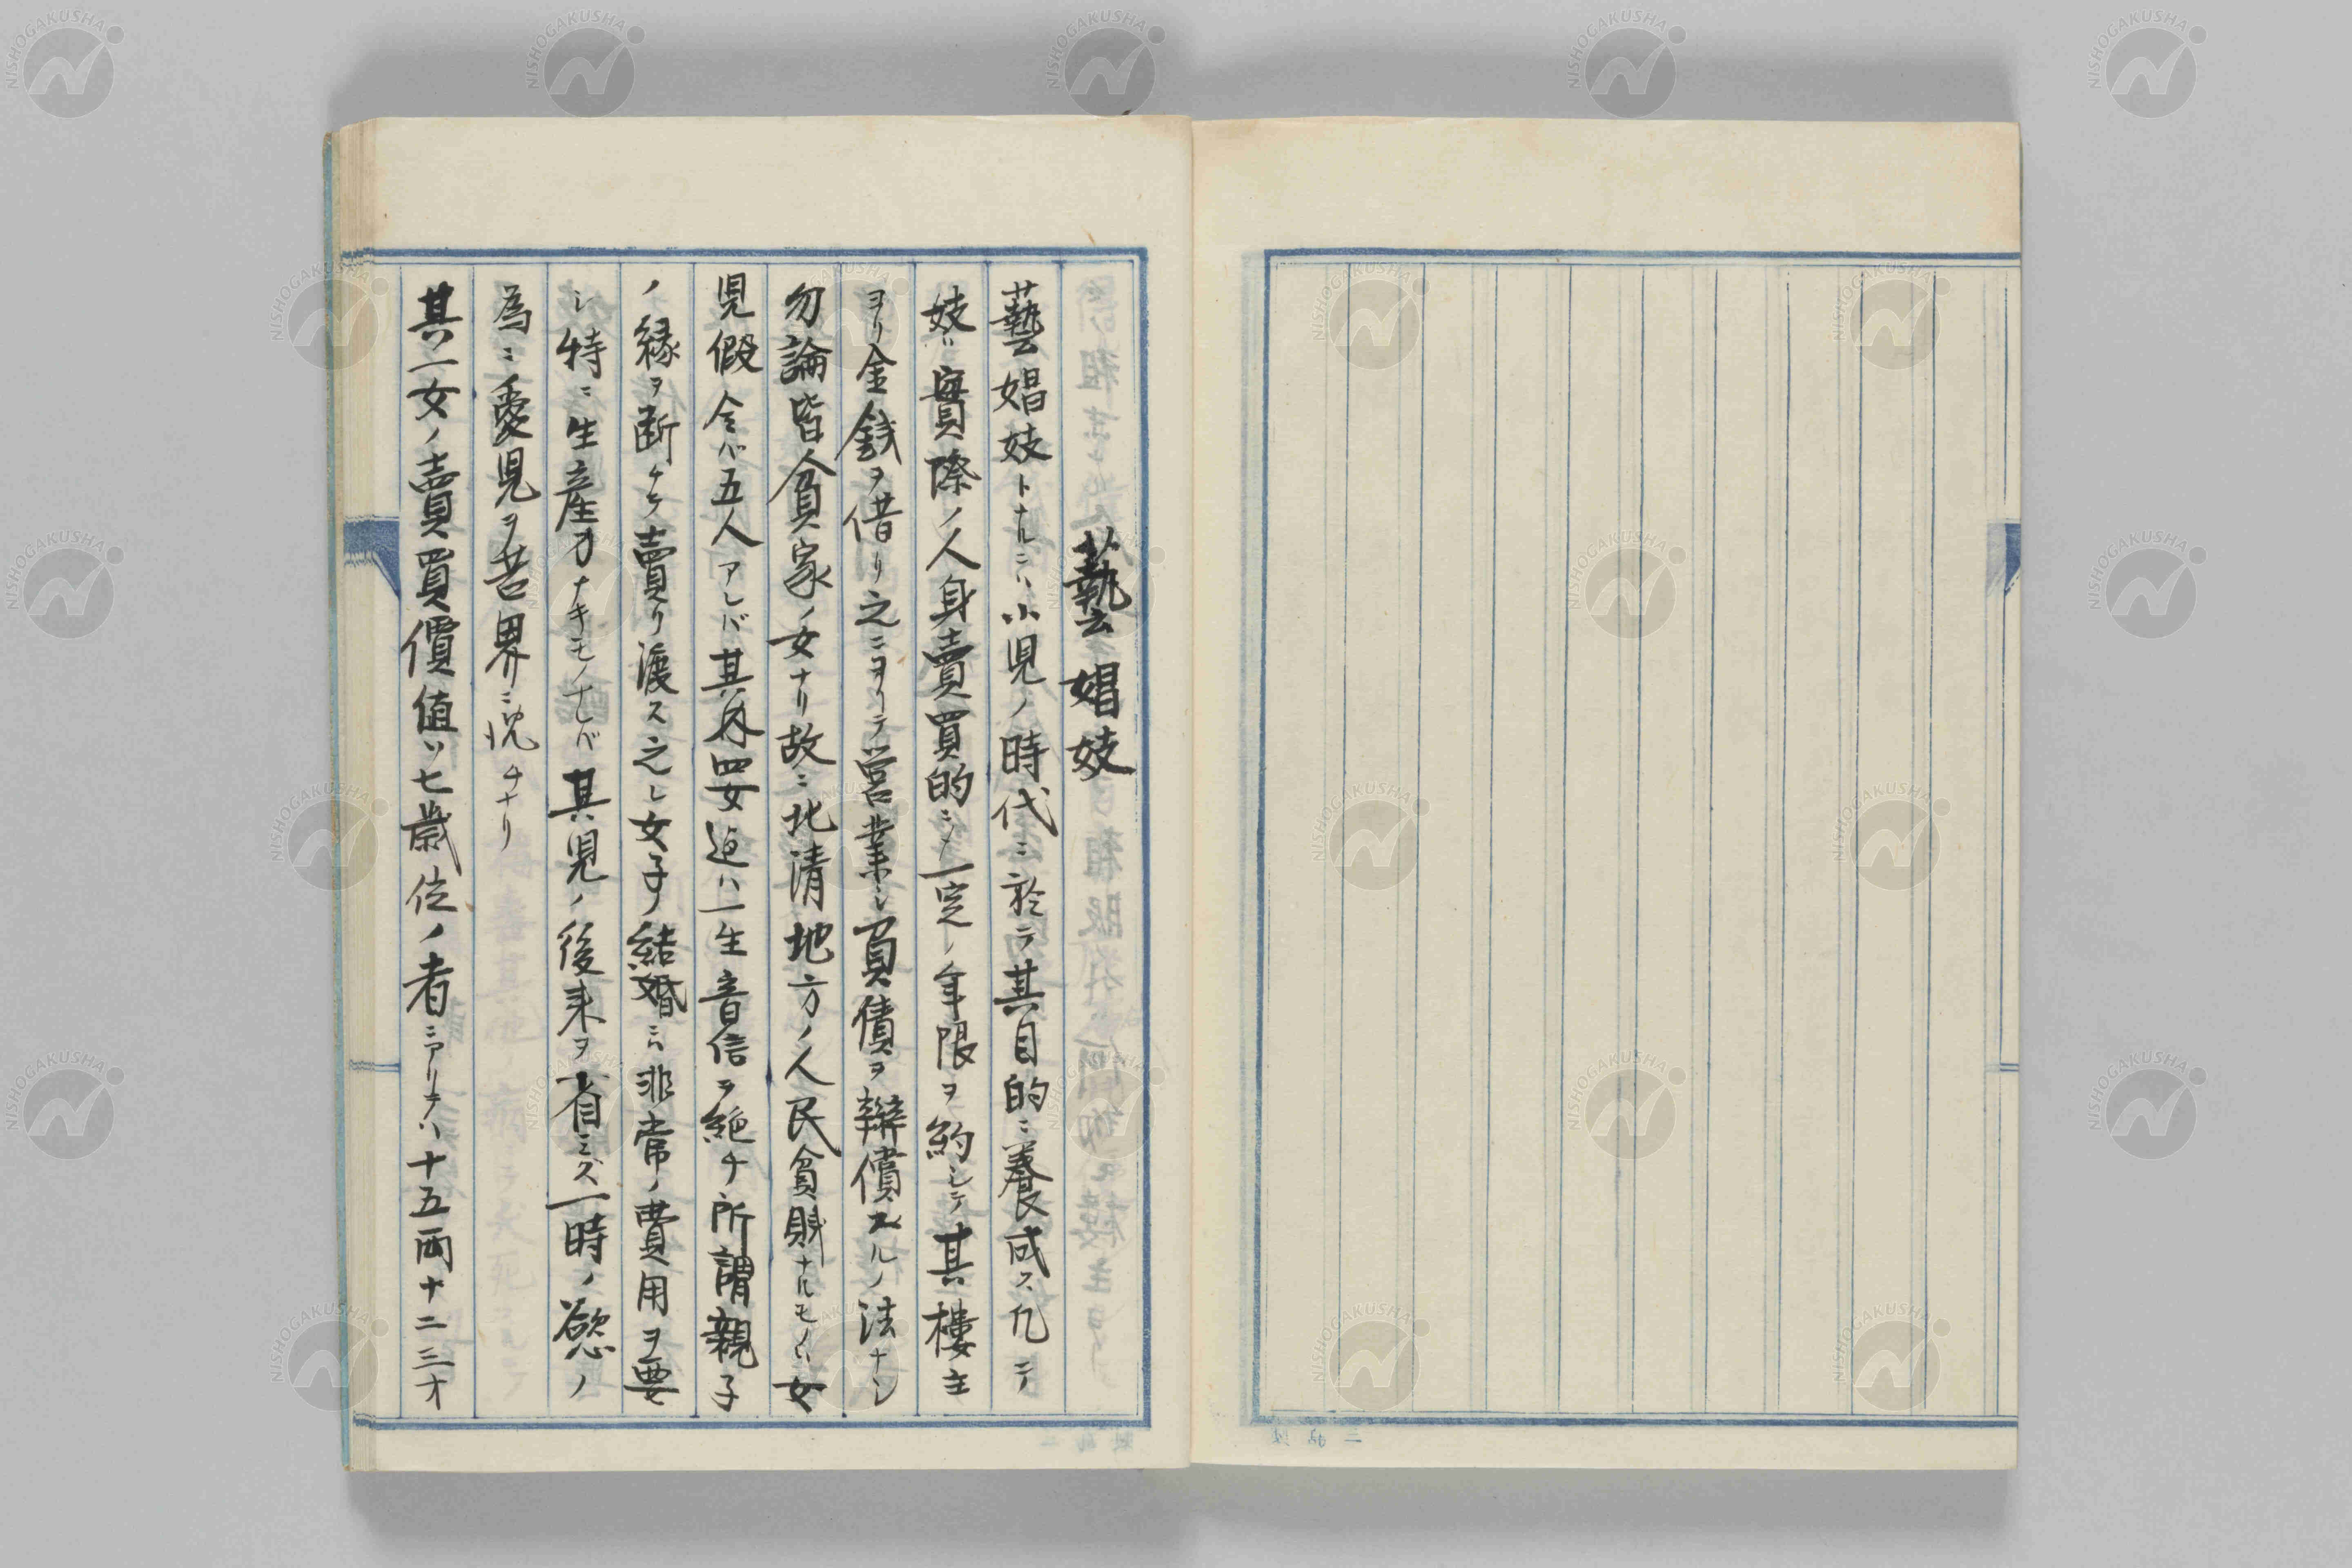 藝娼妓
藝娼妓トナルニハ小児ノ時代ニ於テ其目的ニ養成ス凡テ
妓ハ實際ノ人身賣買的ニシテ一定ノ年限ヲ約シテ其樓主
ヨリ金銭ヲ借リ之ニヨリテ営業シ負債ヲ辨償スルノ法ナシ
勿論皆貧家ノ女ナリ故ニ北清地方ノ人民貧賤ナルモノハ女
児假令バ五人アレバ其内四女迠ハ一生音信ヲ絶チ所謂親子
ノ縁ヲ断チテ賣リ渡ス之レ女子ノ結婚ニハ非常ノ費用ヲ要
シ特ニ生産力ナキモノナレバ其児ノ後来ヲ省ミズ一時ノ慾ノ
為ニ愛児ヲ苦界ニ沈ムナリ
其一女ノ賣買價値ハ七歳位ノ者ニアリテハ十五両十二三才